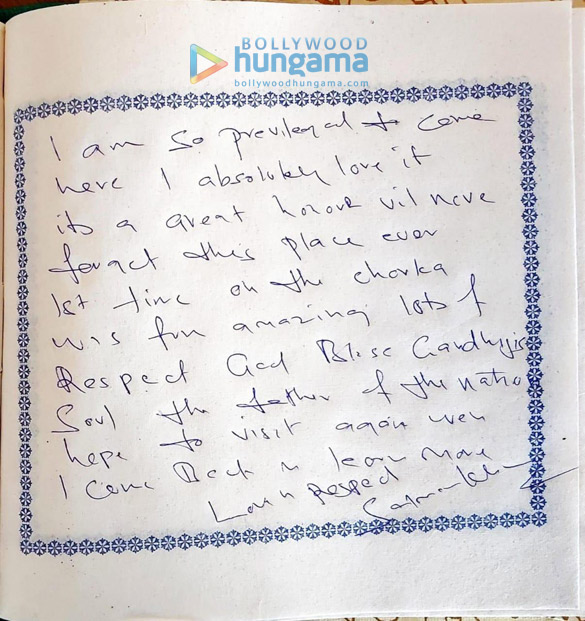 BOLLYWOOD
hungama
bollywoodhungama.com
I am so previleged to come
here I absolutely love it
its a great honour vil neve
forget this place ever
1st time on the charka
was fun amazing lots of
Respect God Bless Gandhijis
Soul the father of the nation
hope to visit again wen
I come Back n learn more
Lov n Respect
Salman Khan